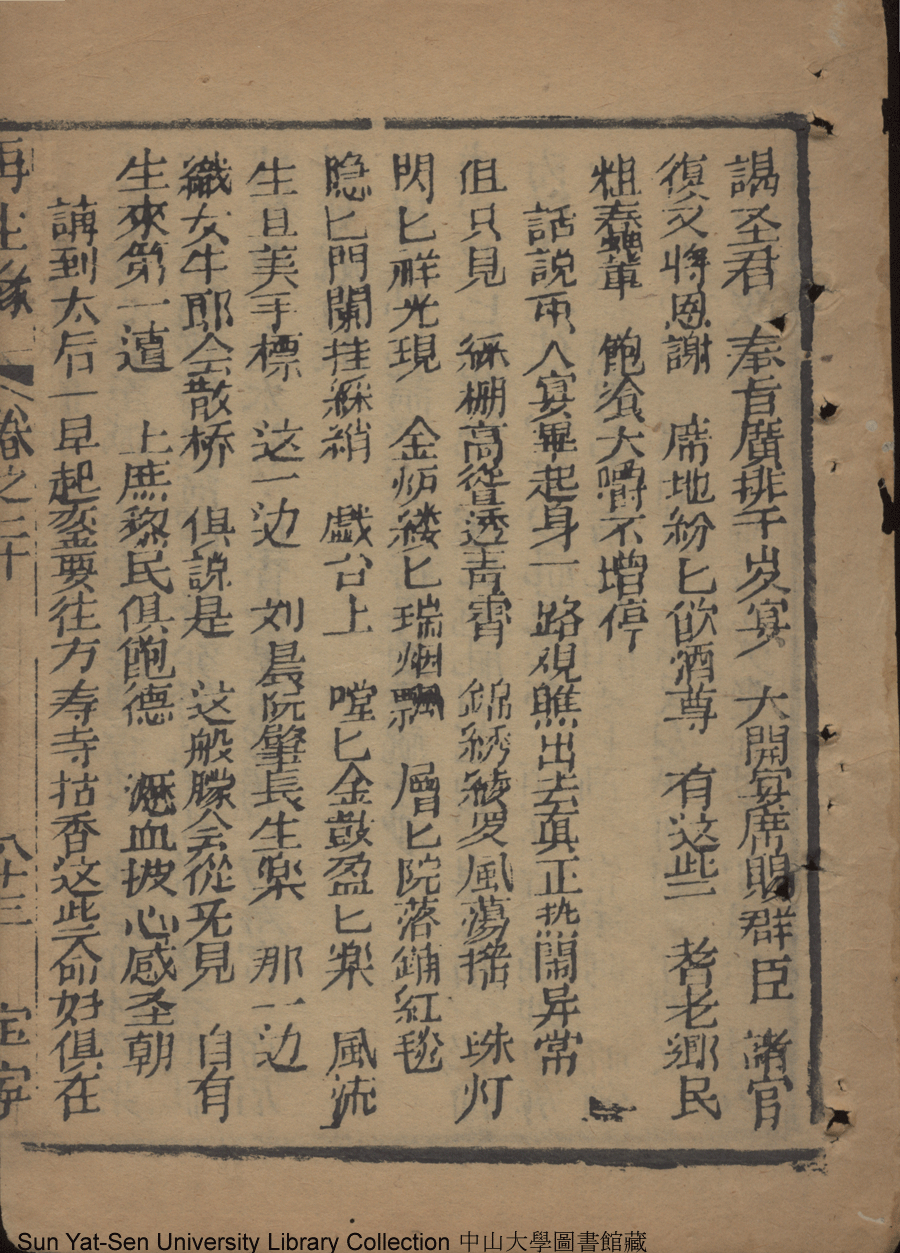 謁圣君　奉旨廣排千岁宴　大開宴席賜群臣　諸官
復又將恩謝　席地紛匕飲酒尊　有这些　耆老鄉民
粗蠢輩　飽飡大嚼不增停
話說两人宴畢起身一路观瞧出去真正热閙异常
但只見　綵棚高聳透青霄　錦綉綾罗風蕩揺　珠灯
閃匕祥光現　金炉縷匕瑞烟飄　層匕院落鋪紅毯
隐匕門闌挂綵綃　戲台上　噹匕金鼓盈匕樂　風流
生旦美丰標　这一边　刘晨阮肇長生樂　那一边
織女牛郎会散桥　俱說是　这般朦会從旡見　自有
生來第一遭　上庶黎民俱飽德　瀝血披心感圣朝
講到太后一早起銮要往万寿寺拈香这些命妇俱在
再生緣　卷之二十　八十三　宝宁
Sun Yat-Sen University Library Collection 中山大學圖書館藏